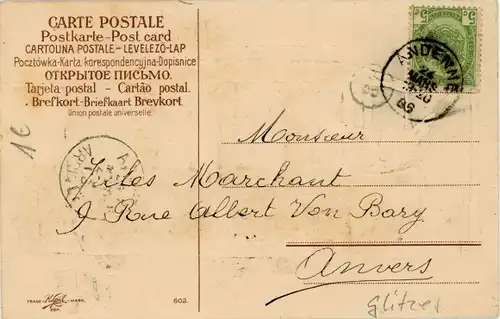 CARTE POSTALE
Postkarte-Post card
CARTOLINA POSTALE-LEVELEZŐ-LAP
Pocztówka-Karta korespondencyjna-Dopisnice
ОТКРЫТОЕ ПИСЬМО.
Tarjeta postal - Cartão postal.
Brefkort-Briefkaart Brevkort.
Union postale universelle.
5 5
ANDENNE
24
MARS
19-20
06
1€
Monsieur
Jules Marchant
9 Rue Albert Von Bary
Anvers
TRADE MARK
DEP.
602.
Glitzer